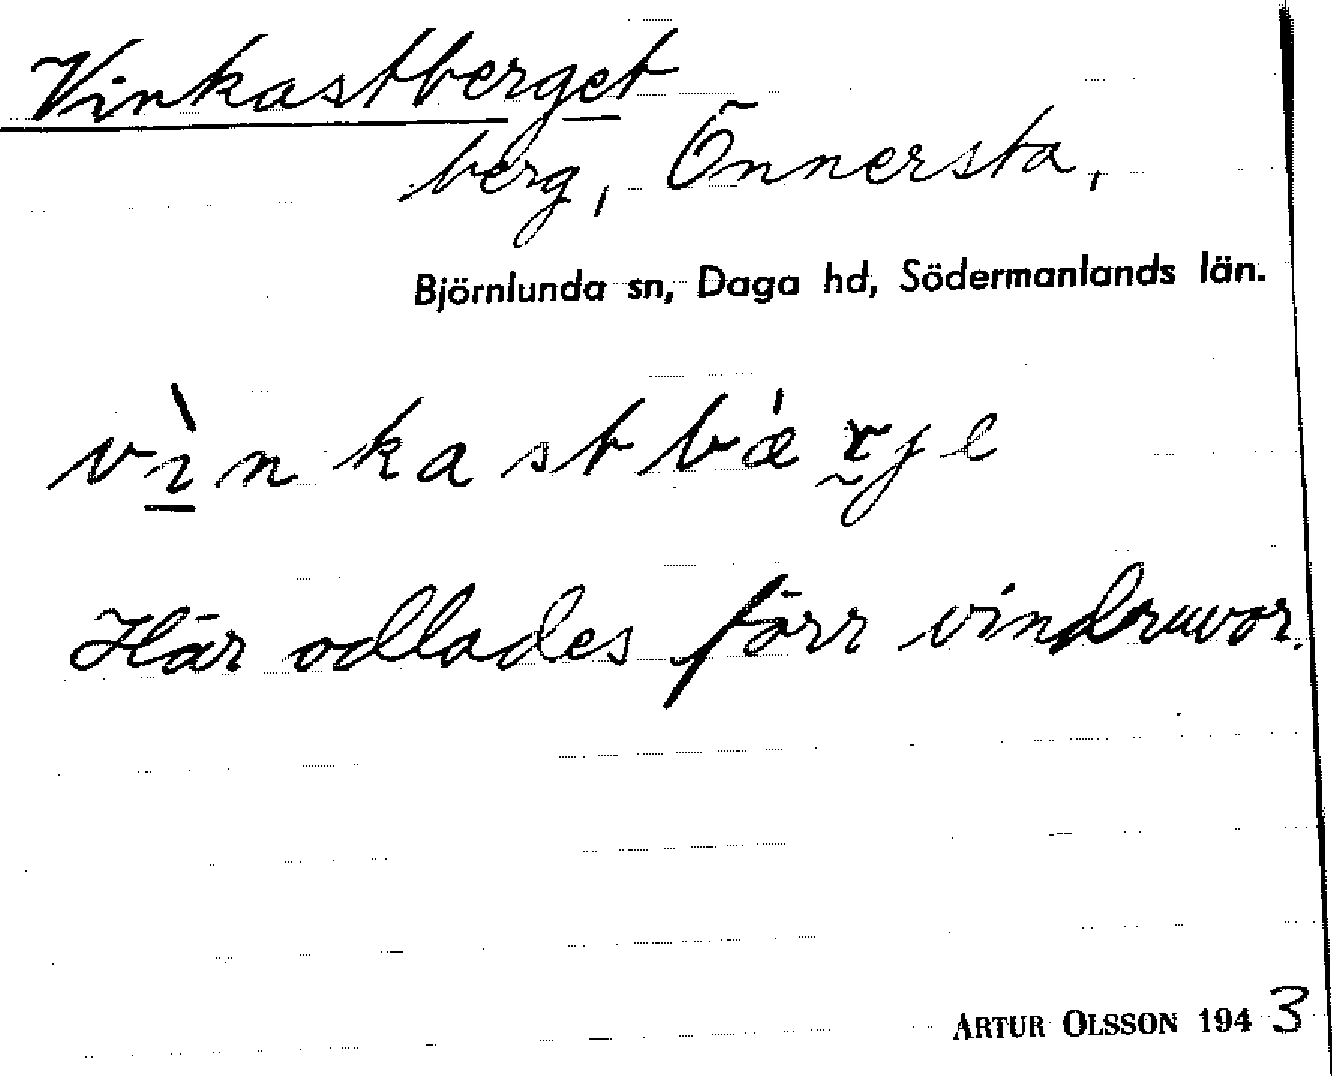 Vinkastberget
berg, Önnersta,
Björnlunda sn, Daga hd, Södermanlands län.
vìnkastbá̈rje
Här odlades förr vindruvor.
ARTUR OLSSON 1943